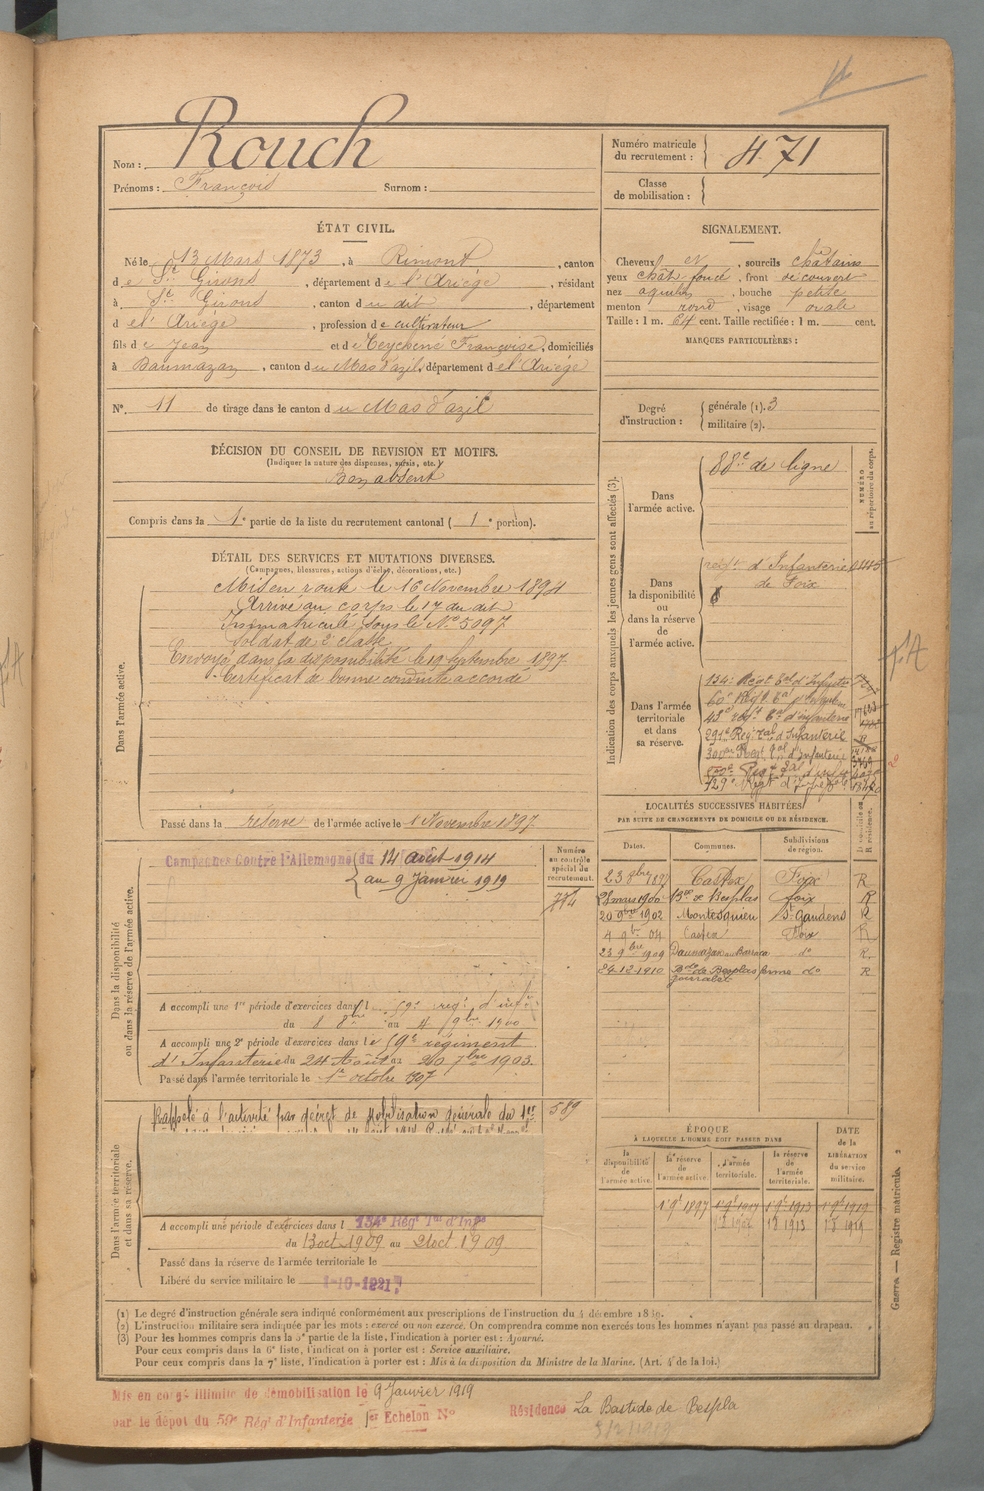 Nom : Rouch
Prénoms : François Surnom :
Numéro matricule du recrutement : 471
Classe de mobilisation :
ÉTAT CIVIL.
Né le 13 Mars 1873, à Rimont, canton
de St Girons, département de l'Ariège, résidant
à St Girons, canton du dit, département
de l'Ariège, profession de cultivateur
fils de Jean et de Teychené Françoise, domiciliés
à Daumazan, canton du Mas d'azil, département de l'Ariège
N° 11 de tirage dans le canton du Mas d'azil
SIGNALEMENT.
Cheveux N, sourcils châtains
yeux chât. foncé, front découvert
nez aquilin, bouche petite
menton rond, visage ovale
Taille : 1 m. 64 cent. Taille rectifiée : 1 m. cent.
MARQUES PARTICULIÈRES :
Degré d'instruction : générale (1). 3
militaire (2).
DÉCISION DU CONSEIL DE REVISION ET MOTIFS.
(Indiquer la nature des dispenses, sursis, etc.)
Bon absent
Compris dans la 1e partie de la liste du recrutement cantonal ( 1e portion).
DÉTAIL DES SERVICES ET MUTATIONS DIVERSES.
(Campagnes, blessures, actions d'éclat, décorations, etc.)
Dans l'armée active.
Mis en route le 16 Novembre 1894
Arrivé au corps le 17 du dit
Immatriculé sous le No 5097
Soldat de 2e classe
Envoyé dans la disponibilité le 19 septembre 1897
Certificat de bonne conduite accordé
Passé dans la réserve de l'armée active le 1 Novembre 1897
Indication des corps auxquels les jeunes gens sont affectés (3).
NUMÉRO au répertoire du corps.
Dans l'armée active.
88e de ligne
Dans la disponibilité ou dans la réserve de l'armée active.
régt d'Infanterie
de Foix
Dans l'armée territoriale et dans sa réserve.
134e Régt Tal d'Infrie
60e Régt Tal d'Infanterie
43e régt Tal d'infanterie
291e Régt Tal d'Infanterie
Dans la disponibilité ou dans la réserve de l'armée active.
Campagnes Contre l'Allemagne du 14 août 1914
au 9 Janvier 1919
Numéro au contrôle spécial du recrutement.
774
A accompli une 1re période d'exercices dans l 59e régt d'infie
du 8 8bre au 4 9bre 1900
A accompli une 2e période d'exercices dans le 59e régiment
d'Infanterie du 24 Août au 20 7bre 1903
Passé dans l'armée territoriale le 1er octobre 1907
LOCALITÉS SUCCESSIVES HABITÉES
PAR SUITE DE CHANGEMENTS DE DOMICILE OU DE RÉSIDENCE.
Dates. Communes. Subdivisions de région.
23 8bre 1897 Castex Foix R
28 mars 1900 Bde de Besplas foix R
20 9bre 1902 Montesquieu St Gaudens R
4 9bre 04 Castex Foix R
23 9bre 1909 Daumazan do R.
24-12-1910 Bde de Besplas ferme do R
Dans l'armée territoriale et dans sa réserve.
Rappelé à l'activité par décret de Mobilisation générale du 1er
589
A accompli une période d'exercices dans l 134e Régt Tal d'Infie
du 13 oct 1909 au 21 oct 1909
Passé dans la réserve de l'armée territoriale le
Libéré du service militaire le 1-10-1921
ÉPOQUE
À LAQUELLE L'HOMME DOIT PASSER DANS
DATE de la LIBÉRATION du service militaire.
la disponibilité de l'armée active. la réserve de l'armée active. l'armée territoriale. la réserve de l'armée territoriale.
1 9bre 1897 1 9bre 1907 1 9bre 1913 1 9bre 1919
Guerre. — Registre matricule.
(1) Le degré d'instruction générale sera indiqué conformément aux prescriptions de l'instruction du 4 décembre 1889.
(2) L'instruction militaire sera indiquée par les mots : exercé ou non exercé. On comprendra comme non exercés tous les hommes n'ayant pas passé au drapeau.
(3) Pour les hommes compris dans la 5e partie de la liste, l'indication à porter est : Ajourné.
Pour ceux compris dans la 6e liste, l'indication à porter est : Service auxiliaire.
Pour ceux compris dans la 7e liste, l'indication à porter est : Mis à la disposition du Ministre de la Marine. (Art. 4 de la loi.)
Mis en congé illimité de démobilisation le 9 Janvier 1919
par le dépôt du 59e Régt d'Infanterie 1er Echelon No
Résidence La Bastide de Bespla